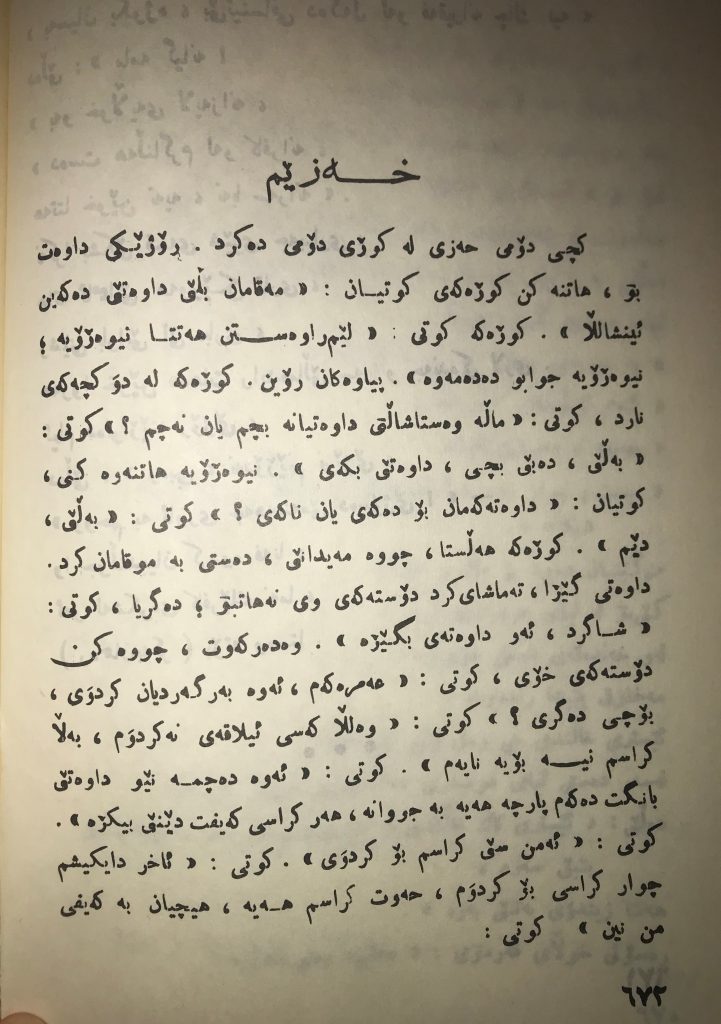 خـــەزێم
کچی دۆمی حەزی لە کوڕی دۆمی دەکرد . ڕۆژێکی داوەت
بۆ ، هاتنە کن کوڕەکەی کوتیـان : « مەقامان بڵێ داوەتێ دەکەین
ئینشاللّا » . کوڕەکە کوتی : « لێم‌راوەسـتن هەتتـا نیوەڕۆیە ؛
نیوەڕۆیە جوابو دەدەمەوە » . پیاوەکان رۆین . کوڕەکە لە دۆ کچەکەی
نارد ، کوتی : « ماڵە وەستاشاڵتی داوەتیانە بچم یان نەچم ؟ » کوتی :
« بەڵێ ، دەبێ بچی ، داوەتێ بکەی » . نیوەڕۆیە هاتنەوە کنی ،
کوتیان : « داوەتەکەمان بۆ دەکەی یان ناکەی ؟ » کوتی : « بەڵێ ،
دێم » . کوڕەکە هەڵستا ، چووە مەیدانێ ، دەستی بە موقامان کرد .
داوەتی گێڕا ، تەماشای‌کرد دۆستەکەی وی نەهاتبۆ ؛ دەگریا ، کوتی :
« شـاگرد ، ئەو داوەتەی بگـێڕە » . وەدەرکەوت ، چووە کن
دۆستەکەی خۆی ، کوتی : « عەمرەکەم ، ئەوە بەرگەردیان کردوَی ،
بۆچی دەگری ؟ » کوتی : « وەللّا کەسی ئیلاقەی نەکردوَم ، بەڵا
کراسم نیـــە بۆیە نایەم » . کوتی : « ئەوە دەچمـە نێو داوەتێ
بانگت دەکەم پارچە هەیە بە جووانە ، هەر کراسی کەیفت دێنێ بیکڕە » .
کوتی : « ئەمن سێ کراسم بۆ کردوَی » . کوتی : « ئاخر دایکیشم
چوار کراسی بۆ کردوَم ، حەوت کراسم هـەیە ، هیچیان بە کەیفی
من نین » کوتی :
٦٧٢